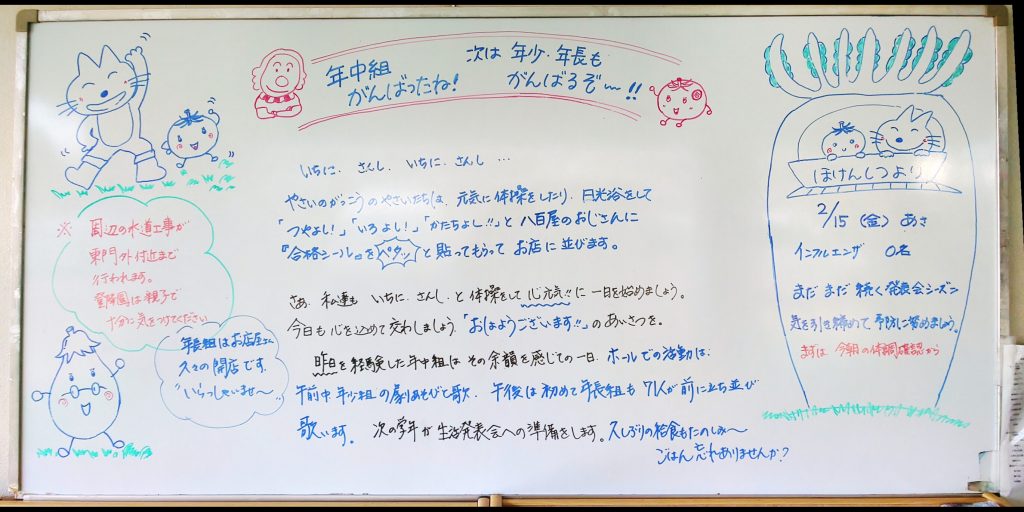 年中組
がんばったね!
次は 年少・年長も
がんばるぞ〜!!
いちに、さんし、いちに、さんし…
やさいのがっこうのやさいたちは、元気に体操をしたり、日光浴をして
「つやよし!」「いろよし!」「かたちよし!!」と八百屋のおじさんに
『合格シール』をペタッと貼ってもらってお店に並びます。
さぁ、私達も いちに、さんし、と体操をして心元気!!に一日を始めましょう。
今日も心を込めて交わしましょう「おはようございます!!」のあいさつを。
昨日を経験した年中組はその余韻を感じての一日。ホールでの活動は、
午前中 年少組の劇あそびと歌、午後は初めて年長組も71人が前に立ち並び
歌います。 次の学年が生活発表会への準備をします。久しぶりの給食もたのしみ〜
ごはん忘れありませんか?
※ 周辺の水道工事が
東門外付近まで
行われます。
登降園は親子で
十分に気をつけてください
年長組はお店屋さん
久々の開店です。
いらっしゃいませ〜
ほけんしつより
2/15(金)あさ
インフルエンザ 0名
まだまだ続く発表会シーズン
気を引き締めて予防に努めましょう。
まずは今朝の体調確認から